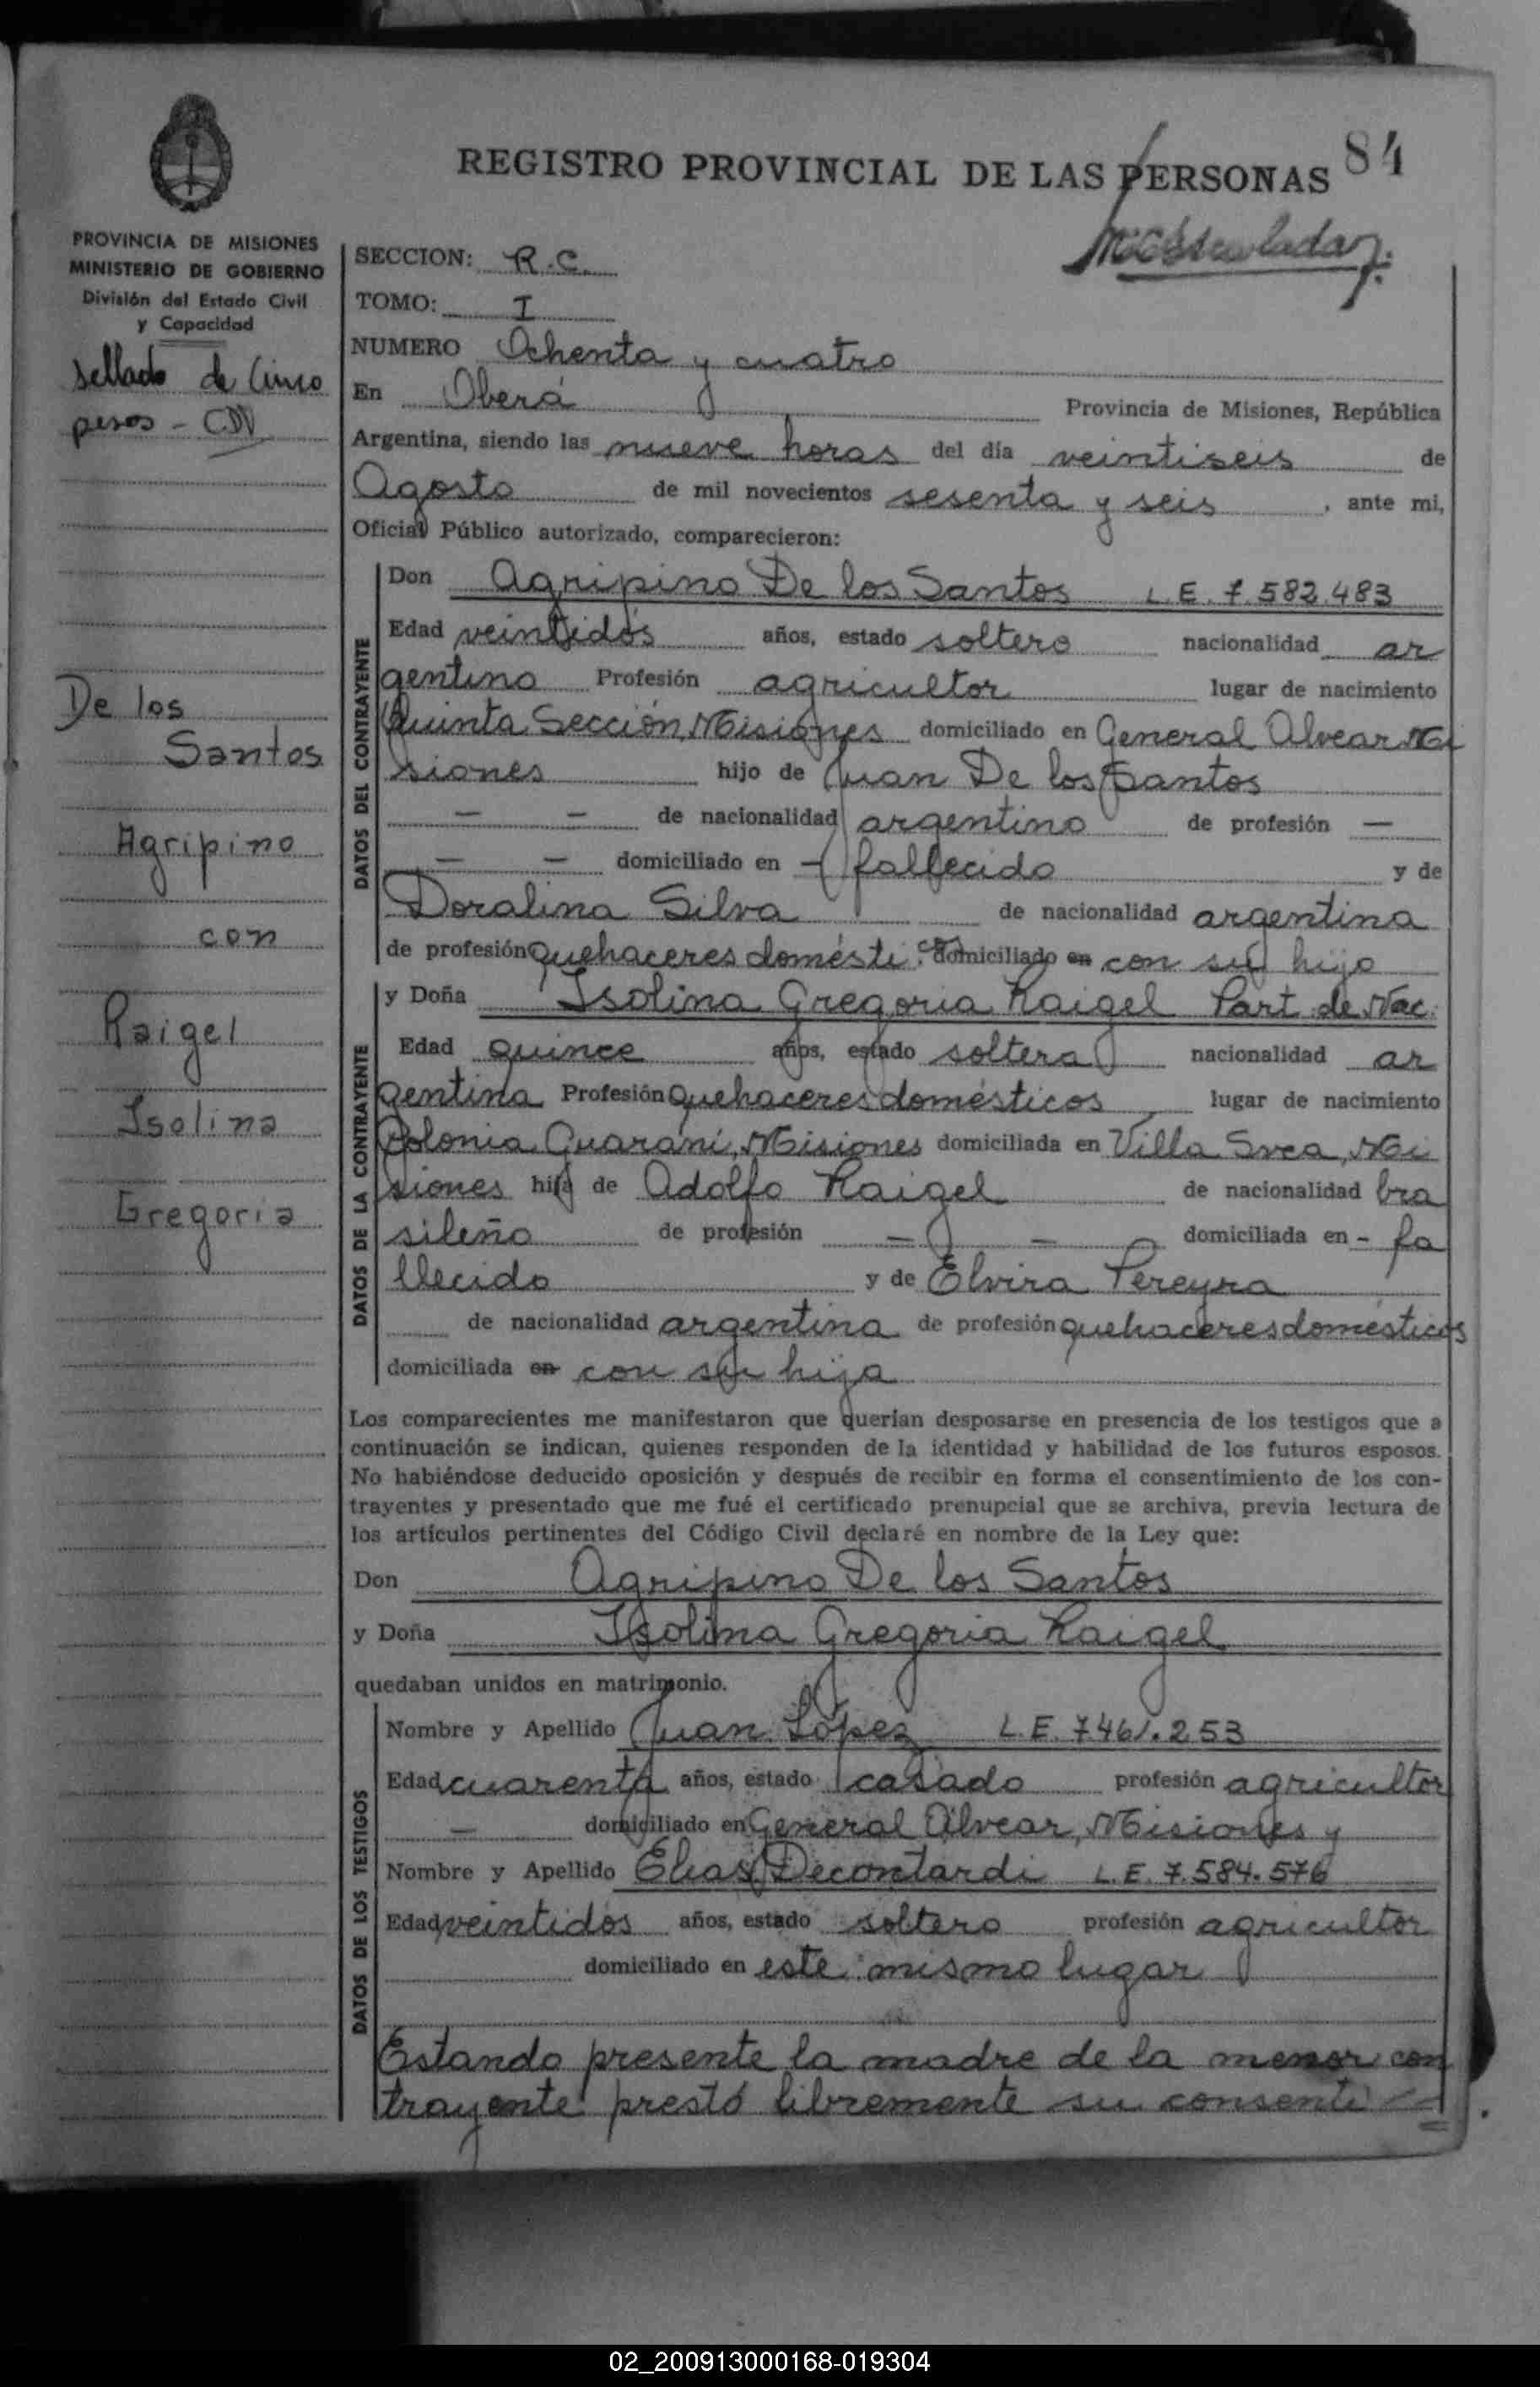 REGISTRO PROVINCIAL DE LAS PERSONAS 84
PROVINCIA DE MISIONES
MINISTERIO DE GOBIERNO
División del Estado Civil
y Capacidad
sellado de Cinco
pesos -
De los
Santos
Agripino
con
Raigel
Isolina
Gregoria
SECCION: R.C.
TOMO: I
NUMERO Ochenta y cuatro
En Oberá Provincia de Misiones, República
Argentina, siendo las nueve horas del día veintiseis de
Agosto de mil novecientos sesenta y seis, ante mi,
Oficial Público autorizado, comparecieron:
DATOS DEL CONTRAYENTE
Don Agripino De los Santos L.E. 7.582.483
Edad veintidós años, estado soltero nacionalidad ar
gentino Profesión agricultor lugar de nacimiento
Quinta Sección, Misiones domiciliado en General Alvear, Mi
siones hijo de Juan De los Santos
— — de nacionalidad argentino de profesión —
— — domiciliado en - fallecido y de
Doralina Silva de nacionalidad argentina
de profesión quehaceres domésticos domiciliado en con su hijo
DATOS DE LA CONTRAYENTE
y Doña Isolina Gregoria Raigel Part. de Nac.
Edad quince años, estado soltera nacionalidad ar
gentina Profesión quehaceres domésticos lugar de nacimiento
Colonia Guaraní, Misiones domiciliada en Villa Svea, Mi
siones hija de Adolfo Raigel de nacionalidad bra
sileño de profesión — — domiciliada en - fa
llecido y de Elvira Pereyra
de nacionalidad argentina de profesión quehaceres domésticos
domiciliada en con su hija
Los comparecientes me manifestaron que querían desposarse en presencia de los testigos que a
continuación se indican, quienes responden de la identidad y habilidad de los futuros esposos.
No habiéndose deducido oposición y después de recibir en forma el consentimiento de los con-
trayentes y presentado que me fué el certificado prenupcial que se archiva, previa lectura de
los artículos pertinentes del Código Civil declaré en nombre de la Ley que:
Don Agripino De los Santos
y Doña Isolina Gregoria Raigel
quedaban unidos en matrimonio.
DATOS DE LOS TESTIGOS
Nombre y Apellido Juan López L.E. 7.461.253
Edad cuarenta años, estado casado profesión agricultor
— domiciliado en General Alvear, Misiones y
Nombre y Apellido Elias Decontardi L.E. 7.584.576
Edad veintidos años, estado soltero profesión agricultor
domiciliado en este mismo lugar
Estando presente la madre de la menor con
trayente prestó libremente su consenti
02_200913000168-019304